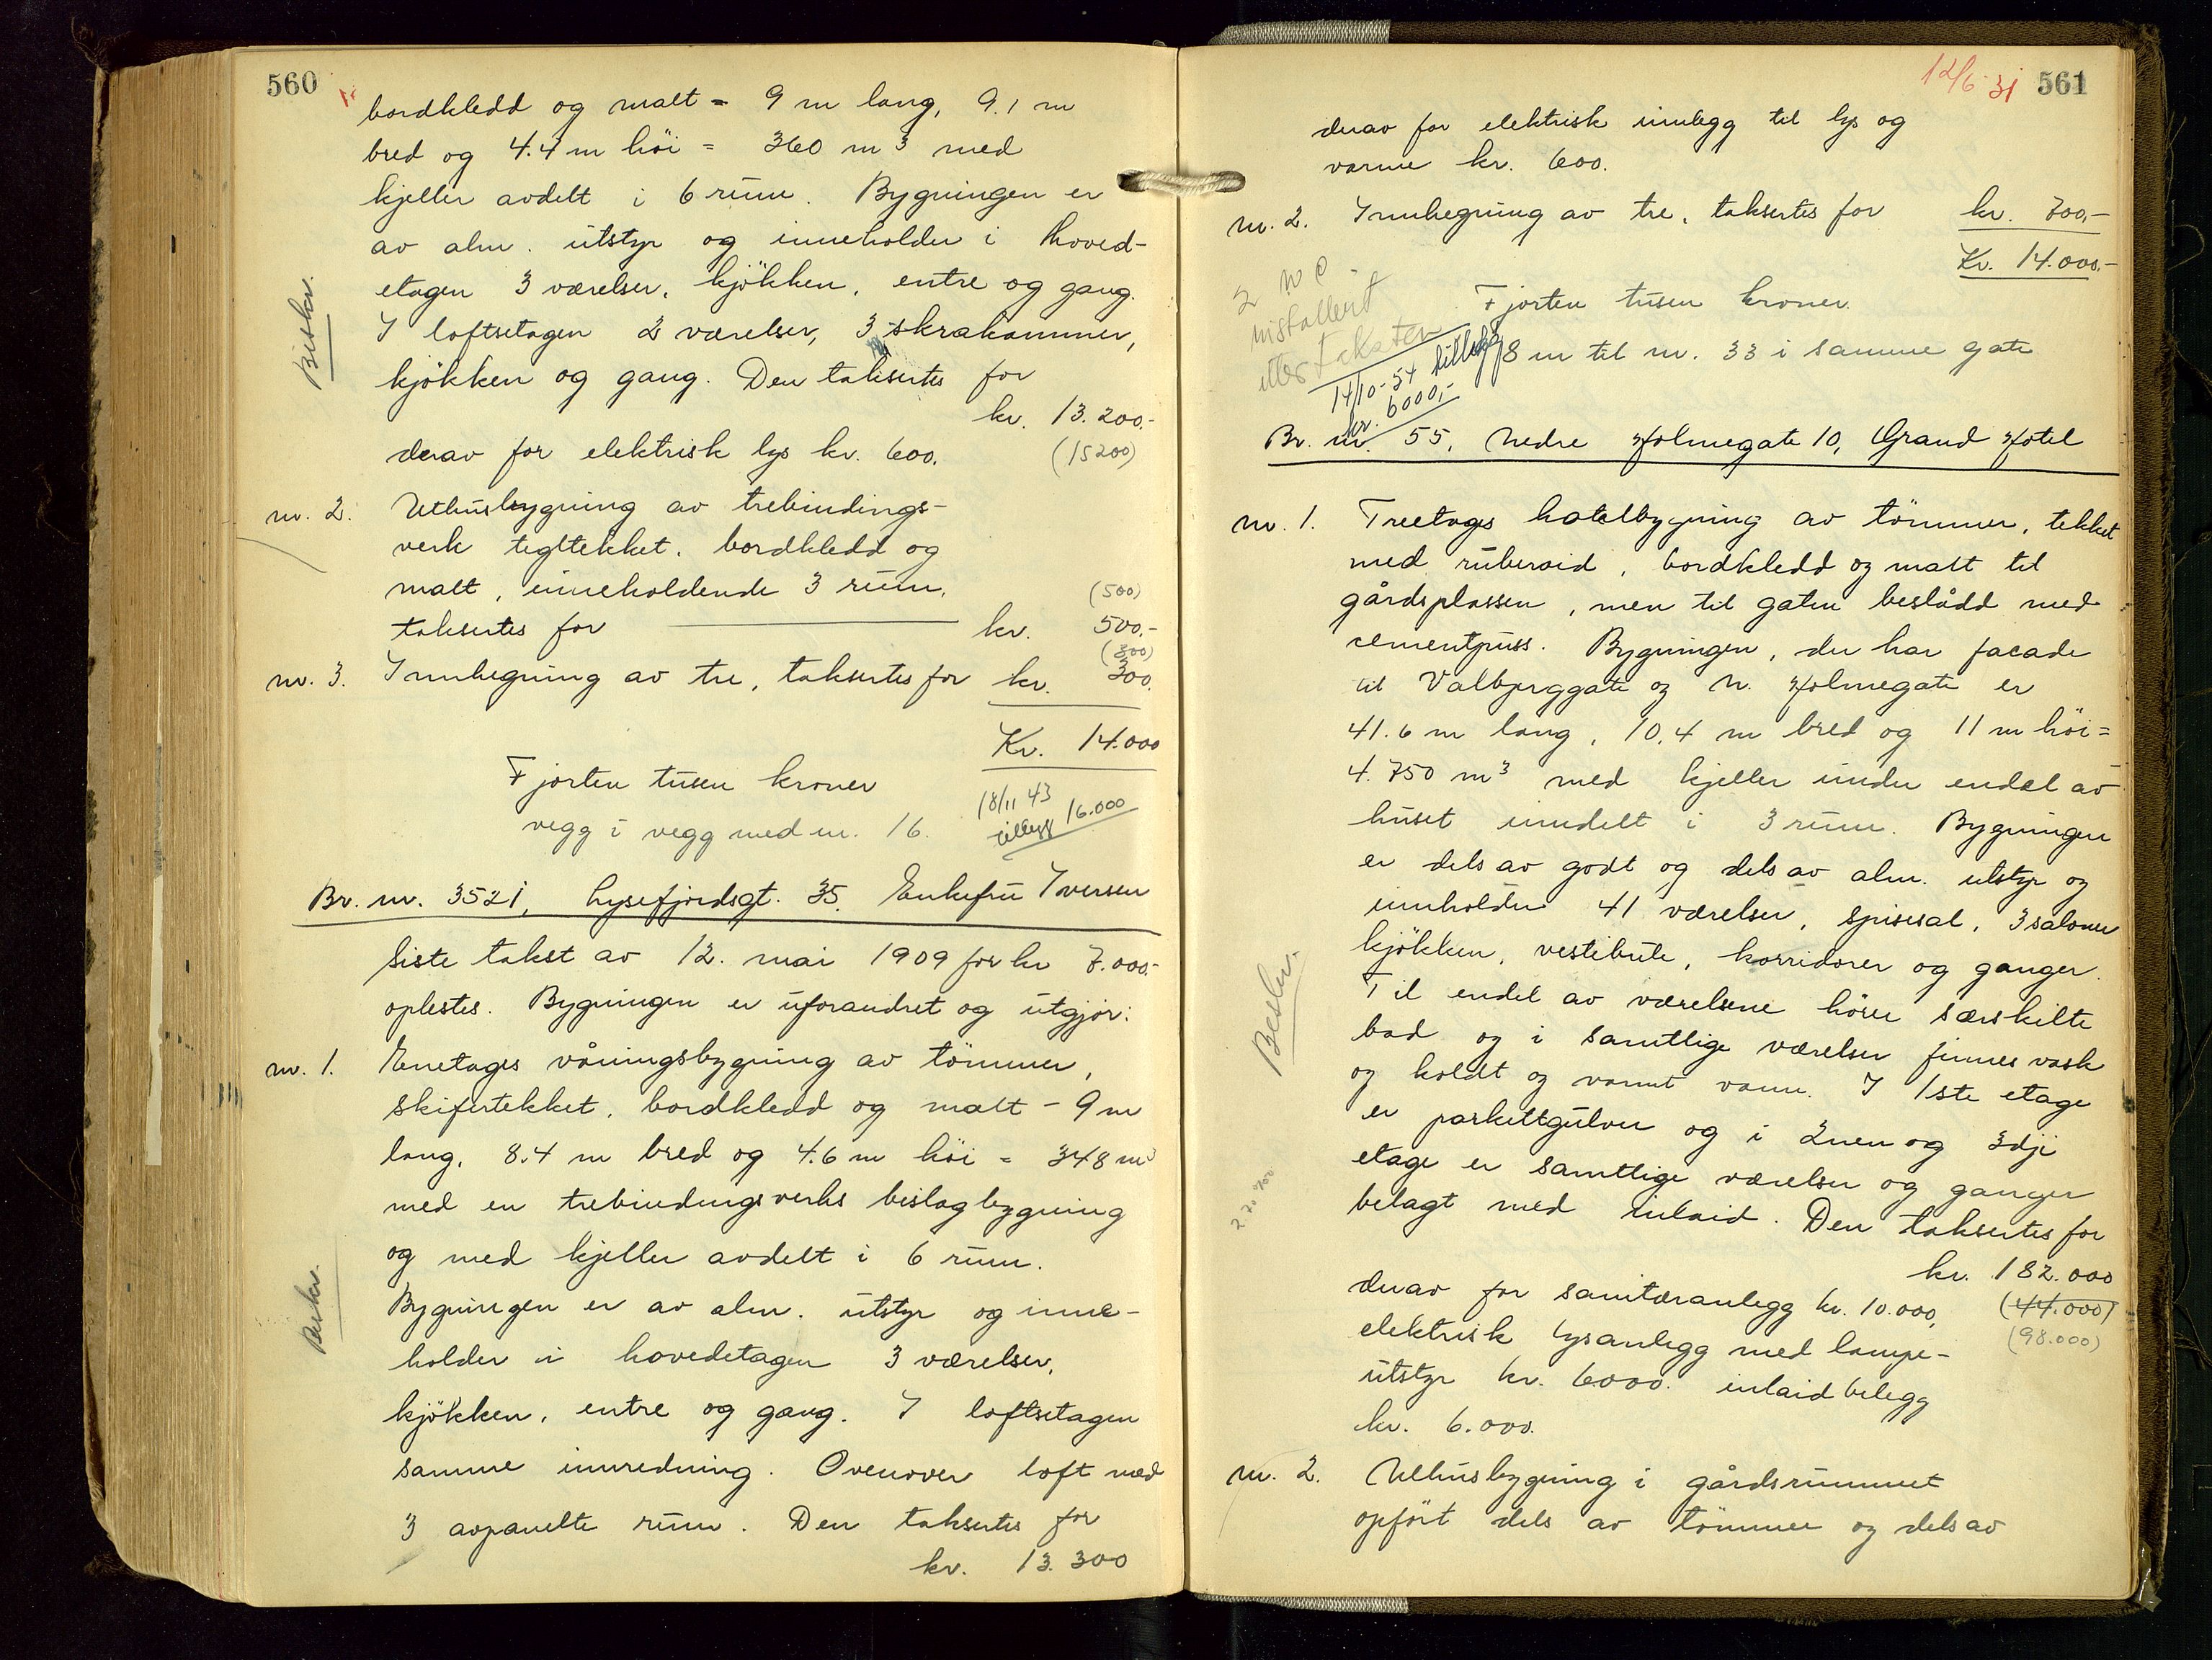 560
bordkledd og malt = 9 m lang, 9.1 m
bred og 4.4 m höi = 360 m3 med
kjeller avdelt i 6 rum. Bygningen er
av alm. utstyr og inneholder i hoved-
etagen 3 værelser, kjökken, entre og gang.
I loftsetagen 2 værelser, 3 skrakammer,
kjökken og gang. Den taksertes for
kr. 13.200.-
Beskr.
derav for elektrisk lys kr. 600. (15200)
nr. 2. Uthusbygning av trebindings-
verk tegltekket, bordkledd og
malt, inneholdende 3 rum, (500)
taksertes for kr. 500.-
(300)
nr. 3. Innhegning av tre, taksertes for kr. 300.
Kr. 14.000
Fjorten tusen kroner
18/11 43
tillegg 16.000
vegg i vegg med nr. 16.
Br. nr. 3521, Lysefjordsgt. 35. Enkefru Iversen
Siste takst av 12. mai 1909 for kr 7.000.-
oplestes. Bygningen er uforandret og utgjör:
nr. 1. Enetages våningsbygning av tömmer,
skifertekket, bordkledd og malt - 9 m
lang, 8.4 m bred og 4.6 m höi = 348 m3
med en trebindingsverks bislagbygning
og med kjeller avdelt i 6 rum.
Beskr.
Bygningen er av alm. utstyr og inne-
holder i hovedetagen 3 værelser,
kjökken, entre og gang. I loftsetagen
samme innredning. Ovenover loft med
3 avpanelte rum. Den taksertes for
kr. 13.300
12/6 31 561
derav for elektrisk innlegg til lys og
varme kr. 600.
nr. 2. Innhegning av tre, taksertes for kr. 700,-
Kr. 14.000.-
Fjorten tusen kroner.
2 W C
installert
etter taksten
14/10-54 tillegg
kr. 6000,-
8 m til nr. 33 i samme gate
Br. nr. 55, Nedre Holmegate 10, Grand Hotel
nr. 1. Treetages hotelbygning av tömmer, tekket
med ruberoid, bordkledd og malt til
gårdsplassen, men til gaten beslådd med
cementpuss. Bygningen, der har facade
til Valbjerggate og N. Holmegate er
41.6 m lang, 10.4 m bred og 11 m höi =
4.750 m3 med kjeller under endel av
huset inndelt i 3 rum. Bygningen
er dels av godt og dels av alm. utstyr og
innholder 41 værelser, spisesal, 3 saloner
kjökken, vestibule, korridorer og ganger.
Beskr.
Til endel av værelsene hörer særskilte
bad og i samtlige værelser finnes vask
og koldt og varmt vann. I 1ste etage
er parkettgulver og i 2nen og 3dje
etage er samtlige værelser og ganger
belagt med inlaid. Den taksertes for
220 700
kr. 182.000
derav for sanitæranlegg kr. 10.000, (44.000)
elektrisk lysanlegg med lampe- (98.000)
utstyr kr. 6000. inlaidbelegg
kr. 6.000.
nr. 2. Uthusbygning i gårdsrummet
opfört dels av tömmer og dels av